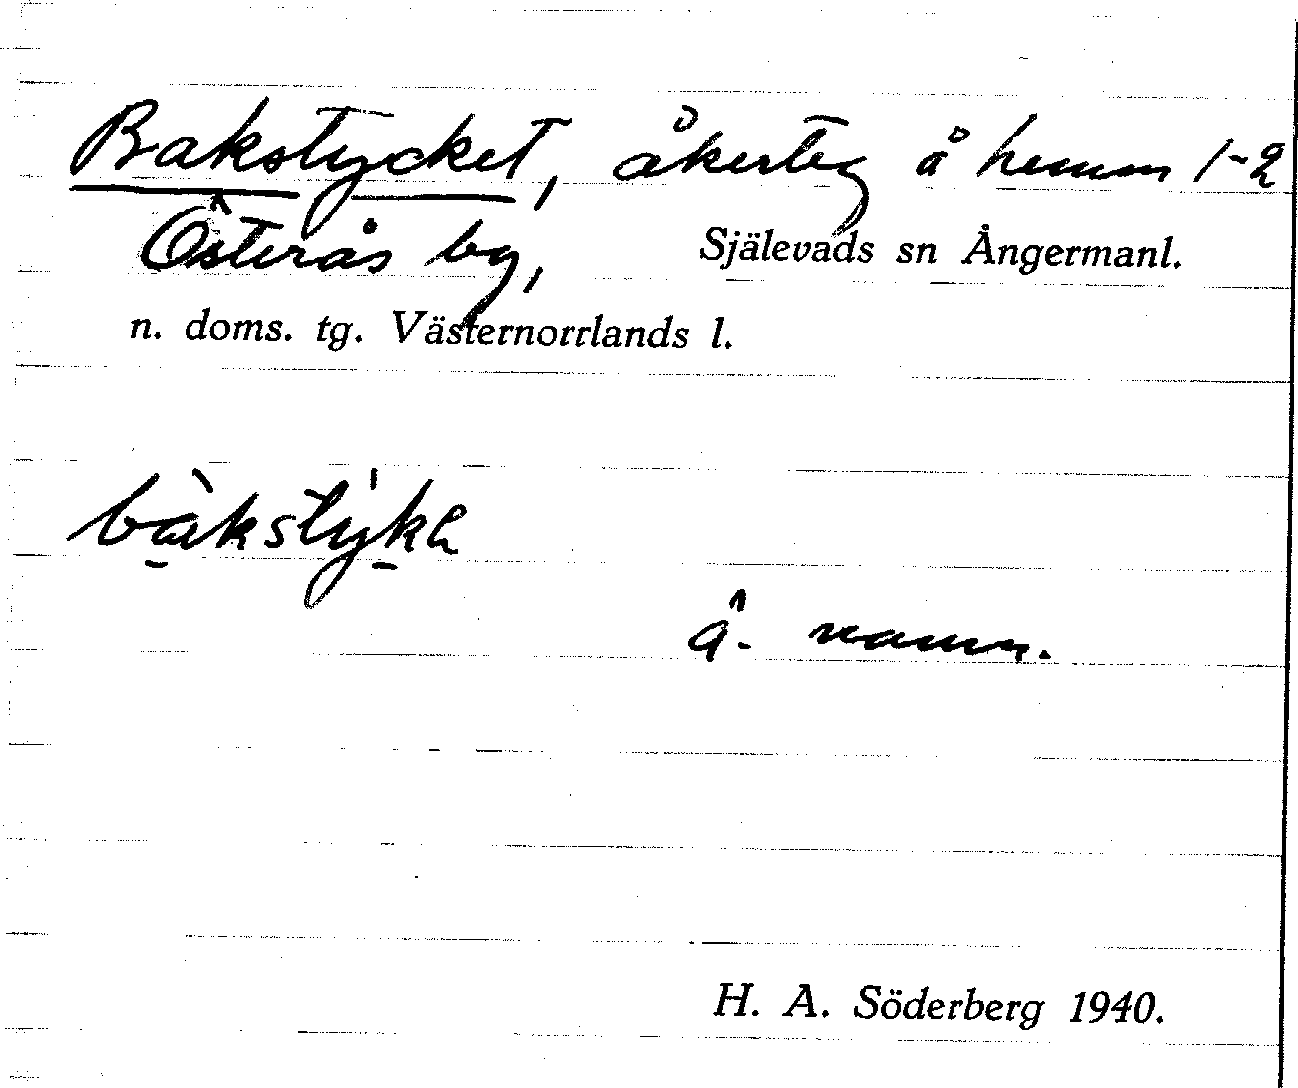 Bakstycket, åkerteg å hemm 1-2
Österås by, Själevads sn Ångermanl.
n. doms. tg. Västernorrlands l.
bàkstỳkɐ
Å. namn.
H. A. Söderberg 1940.